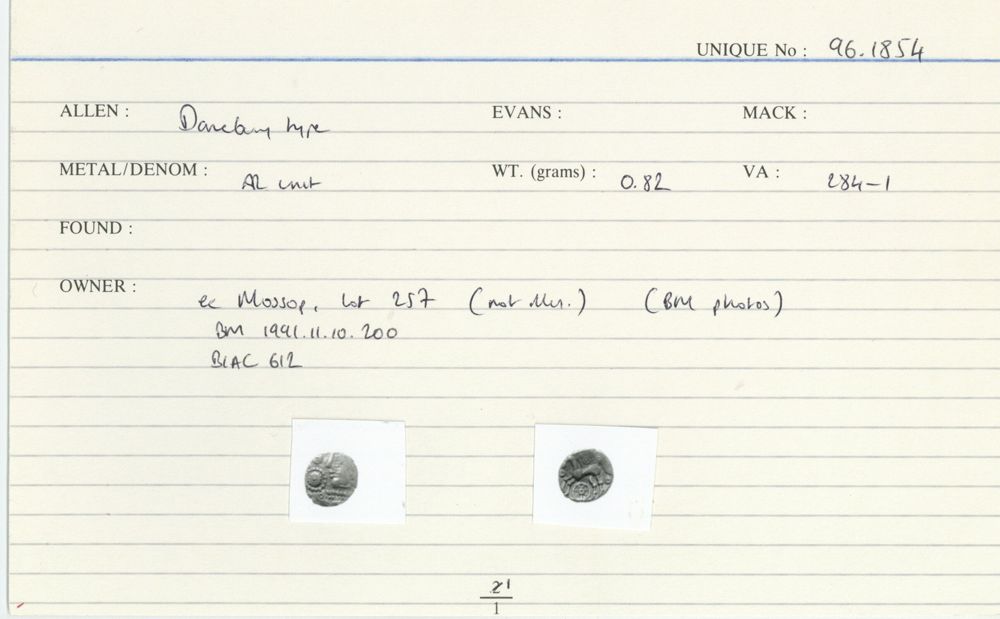 UNIQUE No : 96.1854
ALLEN : Danebury type EVANS : MACK :
METAL/DENOM : AR unit WT. (grams) : 0.82 VA : 284-1
FOUND :
OWNER : ex Mossop, lot 257 (not illus.) (BM photos)
BM 1991.11.10.200
BIAC 612
21
1